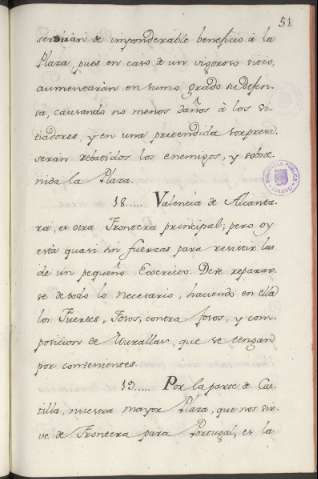 51
servirán de imponderable beneficio á la
Plaza, pues en caso de un vigoroso sitio,
aumentarán en sumo grado su defen-
sa, causando no menos daños á los si-
tiadores, y en una preendida sorpresa
serán rebatidos los enemigos, y soste-
nida la Plaza.
18..... Valencia de Alcanta-
ra, es otra Frontera principal; pero oy
está quasi sin fuerzas para resistir las
de un pequeño Exercito. Deve reparar-
se de todo lo necesario, haciendo en ella
los Fuertes, Fosos, contra fosos, y com-
posicion de Murallas, que se tengan
por convenientes.
19..... Por la parte de Cas-
tilla, nuestra mayor Plaza, que nos sir-
ve de Frontera para Portugal, es la